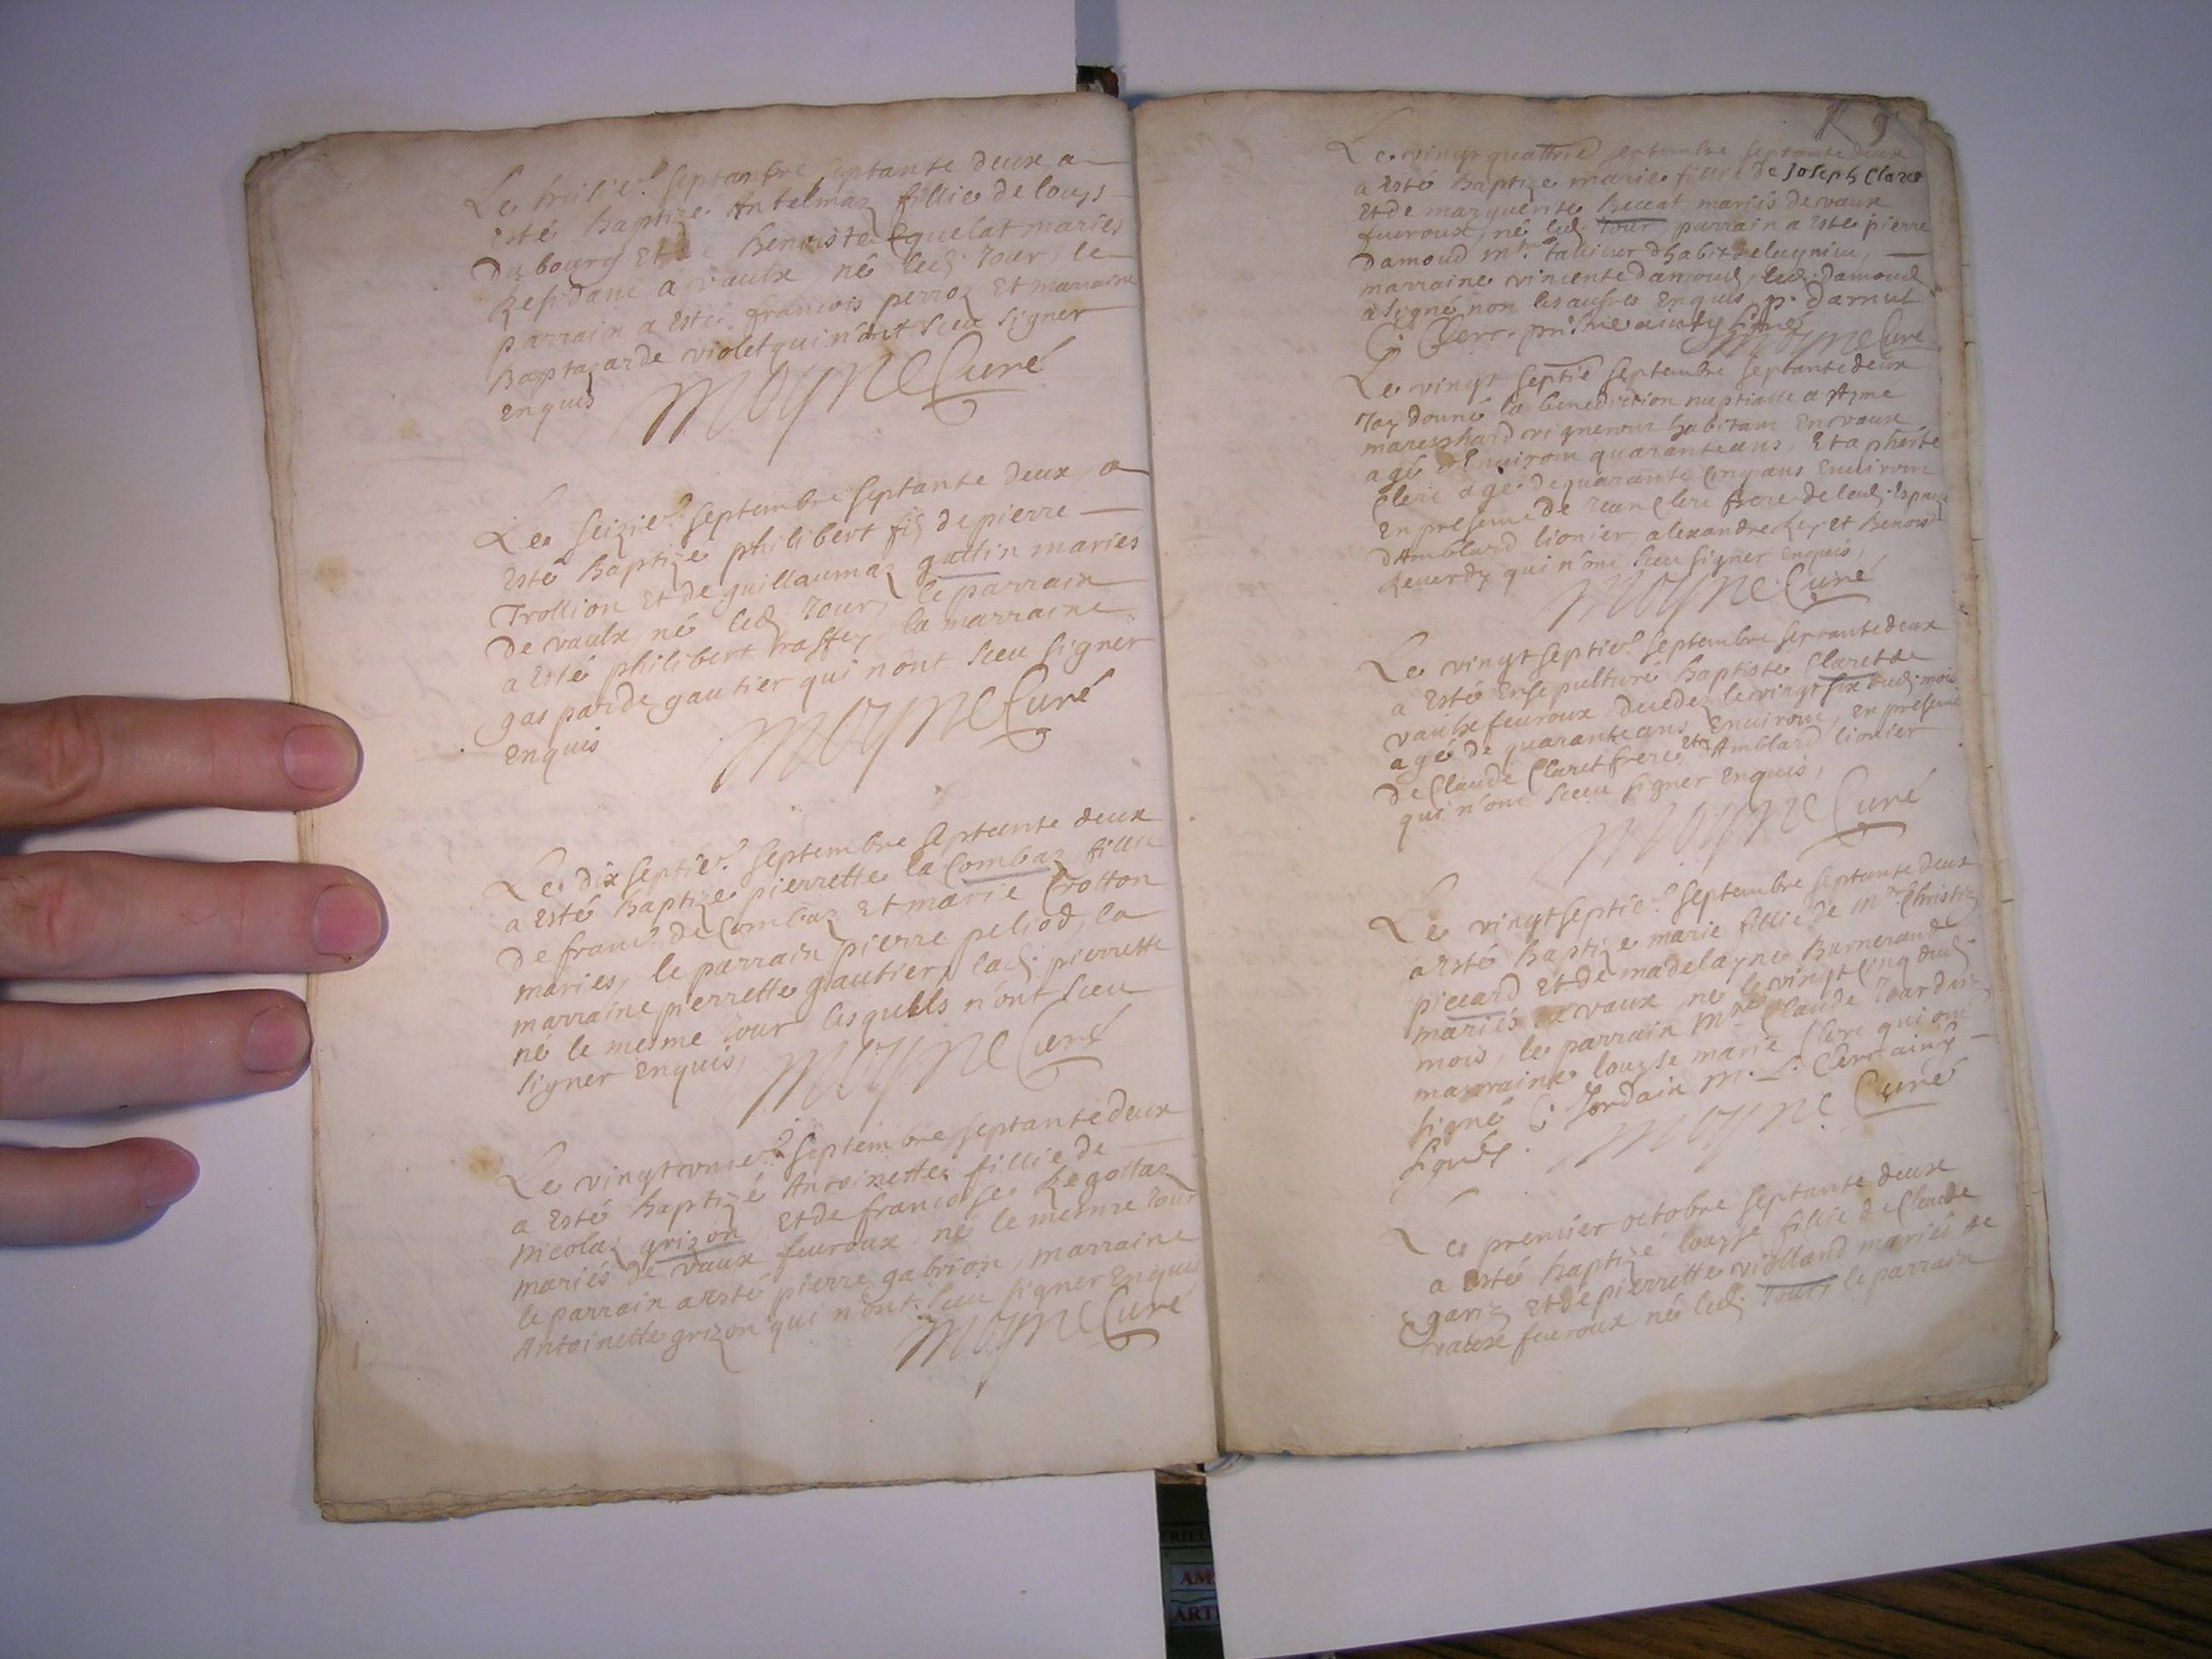 Le septambre septante deux a
esté baptizé Antelmaz fillie de louys
dubourg et de benoiste mariés
Residant a vaulx né led. Jour, le
parrain a esté francois perroz et marraine
violet qui n'ont sceu signer
enquis Moyne Curé
Le seizie.e septembre septante deux a
esté baptize philibert fis de pierre
Trollion et de guillaumaz gattin mariés
de vaulx né led. Jour, le parrain
a esté philibert la marraine
gasparde gautier qui nont sceu signer
enquis Moyne Curé
Le dix septie.e septembre septante deux
a esté baptize pierrette la Combaz fillie
de franc.s de Combaz et marie Crotton
maries, le parrain pierre peliod, la
marraine pierrette gautier, lad. pierrette
né le mesme Jour lesquells n'ont sceu
signer enquis, Moyne Curé
Le vingt unie.e septembre septante deux
a esté baptizé Antoinette fillie de
Nicolaz grizon et de francoise Regottaz
mariés de vaux feuroux né le mesme Jour
le parrain a esté pierre gabrion, marraine
Antoinette grizon qui n'ont sceu signer enquis
Moyne Curé
9
Le vingt quattrie septembre septante deux
a esté baptize marie fillie de Joseph Claret
et de marguerite Beccat mariés de vaux
feuroux, né led. Jour, parrain a este pierre
damoud
marraine vincente damoud, led. damoud
a signé non les autres enquis p. darnut
Moyne Curé
Le vingt septie septembre septante deux
Jay donné la benediction nuptialle a Aymé
mareschard vigneron habitant en vaux
agé d'environ quarante ans, et a
Clerc agé de quarante cinq ans environ
en presence de Jean Clerc frere de lad. espouze
d'Amblard lionier, alexandre Rey et Benoist
Reuerdy qui n'ont sceu signer enquis,
Moyne Curé
Le vingt septie.e septembre septante deux
a esté ensepulturé baptiste Claret de
vaulx feuroux decedez le vingt six dud. mois
agé de quarante ans environ, en presence
de Claude Claret frere et d'Amblard lionier
qui n'ont sceu signer enquis,
Moyne Curé
Le vingt septie.e septembre septante deux
a esté baptize marie fillie de m.re Christin
piccard et de madelayne Burnerande
mariés de vaux né le vingt cinq dud.
mois, le parrain m.re Claude Jourdain
marraine louyse marie Clerc qui ont
signé C: Jordain m. L. Clerc ainsy
signés. Moyne Curé
Le premier octobre septante deux
a esté baptizé louyse fillie de Claude
et de pierrette violland mariés de
vaux feuroux né led. Jour, le parrain